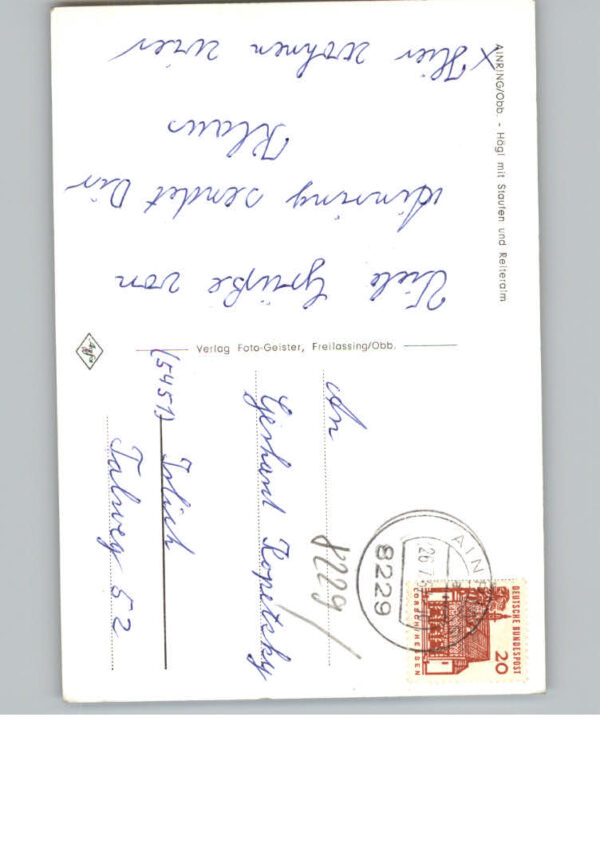 AINRING/Obb. - Högl mit Staufen und Reiteralm
x Hier wohnen wir
Viele Grüße von
Ainring sendet Dir
Klaus
Verlag Foto-Geister, Freilassing/Obb.
Agfa
An
Gerhard Kopetzky
(5451) Irlich
Talweg 52
8229
8229
AINRING
26.7.
DEUTSCHE BUNDESPOST
20
LORSCH/HESSEN